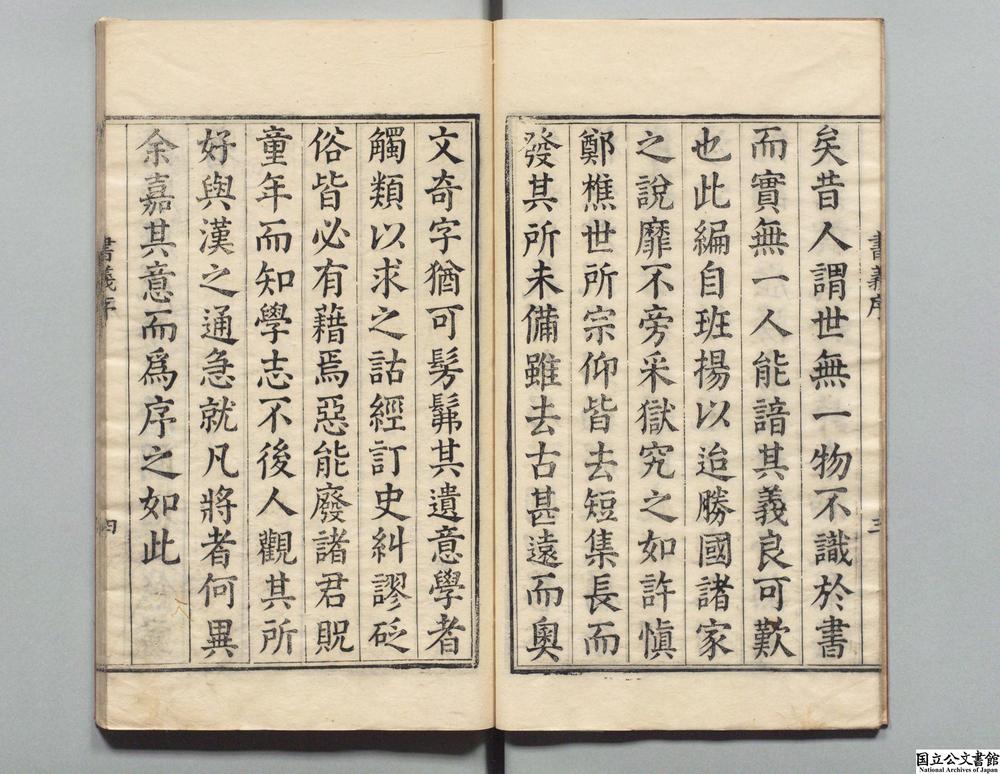 書義序
三
矣昔人謂世無一物不識於書
而實無一人能諳其義良可歎
也此編自班揚以迨勝國諸家
之說靡不旁采獄究之如許慎
鄭樵世所宗仰皆去短集長而
發其所未備雖去古甚遠而奧
文奇字猶可髣髴其遺意學者
觸類以求之詁經訂史糾謬砭
俗皆必有藉焉惡能廢諸君貺
童年而知學志不後人觀其所
好與漢之通急就凡將者何異
余嘉其意而爲序之如此
書義序
四
国立公文書館
National Archives of Japan